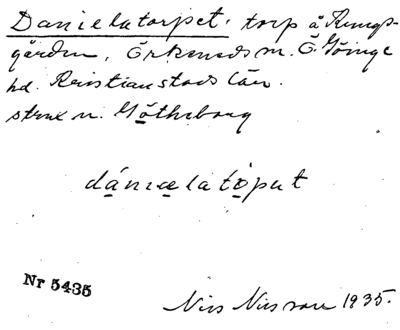 Danielatorpet, torp å Kungs-
gården, Örkeneds sn. Ö. Göinge
hd. Kristianstads län.
strax n. Götheborg
dánıælatǫput
Nr 5435
Nils Nilsson 1935.